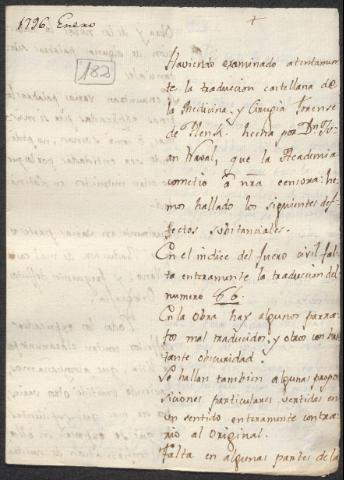 1796. Enero
+
182
Haviendo examinado atentamen-
te la traducion castellana de
la Medicina, y Cirugia forense
de Plenk. hecha por Dn. Ju-
an Naval, que la Academia
cometio á nra censura: he-
mos hallado los siguientes de-
fectos substanciales.
En el indice del fuero civil fal-
ta enteramente la traduccion del
numero 66.
En la obra hay algunos parra-
fos mal traducidos, y otros con bas-
tante obscuridad.
Se hallan tambien algunas propo-
siciones particulares vertidas en
un sentido enteramente contra-
rio al Original.
Falta en algunas partes de la